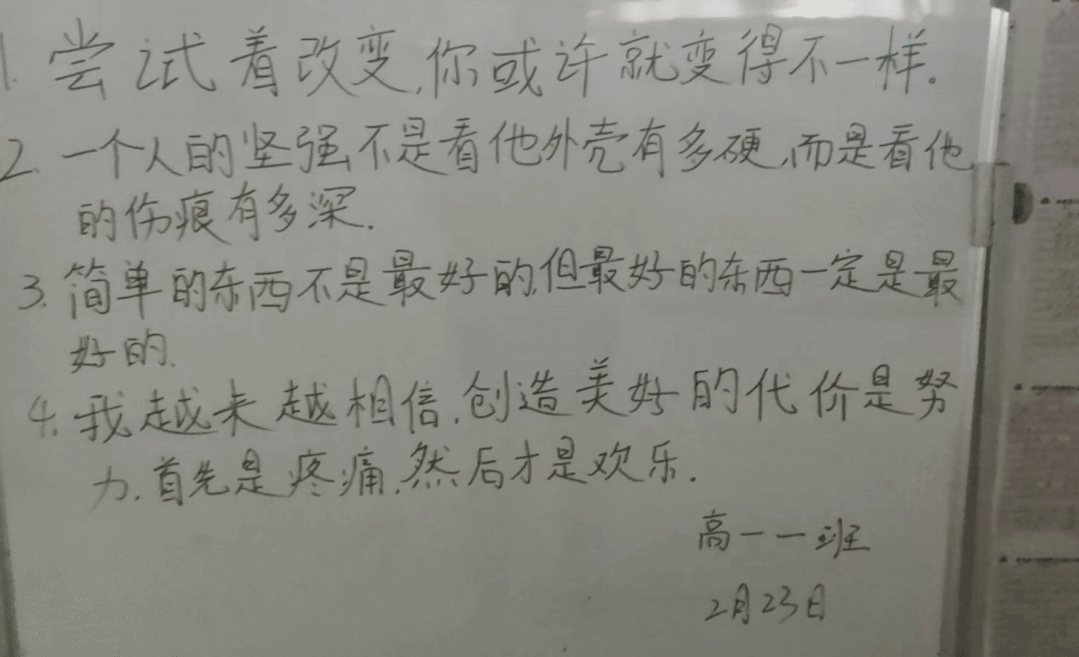 1. 尝试着改变,你或许就变得不一样.
2. 一个人的坚强不是看他外壳有多硬,而是看他
的伤痕有多深.
3. 简单的东西不是最好的,但最好的东西一定是最
好的.
4. 我越来越相信,创造美好的代价是努
力.首先是疼痛,然后才是欢乐.
高一一班
2月23日